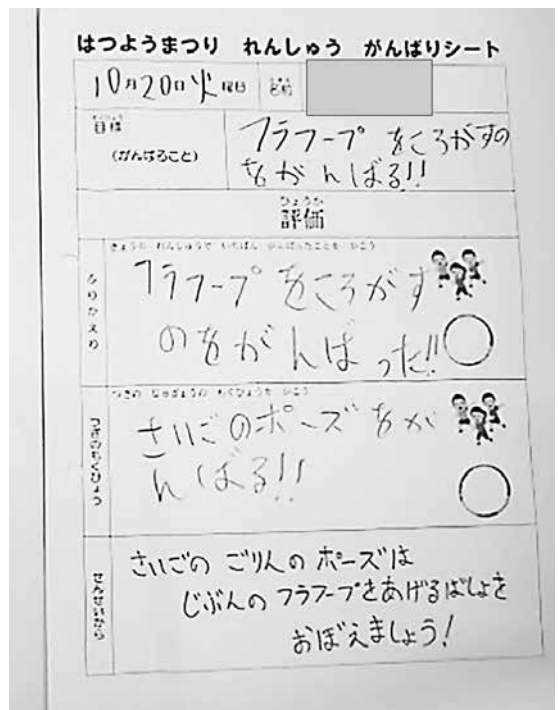 はつようまつり れんしゅう がんばりシート
10月20日火曜日 名前
もくひょう
目標
(がんばること)
フラフープをころがすの
をがんばる!!
ひょうか
評価
ふりかえり
きょうの れんしゅうで いちばん がんばったことを かこう
フラフープをころがす
のをがんばった!!
つぎのもくひょう
つぎの じゅぎょうの もくひょうを かこう
さいごのポーズをが
んばる!!
せんせいから
さいごの ごりんの ポーズは
じぶんの フラフープをあげるばしょを
おぼえましょう!